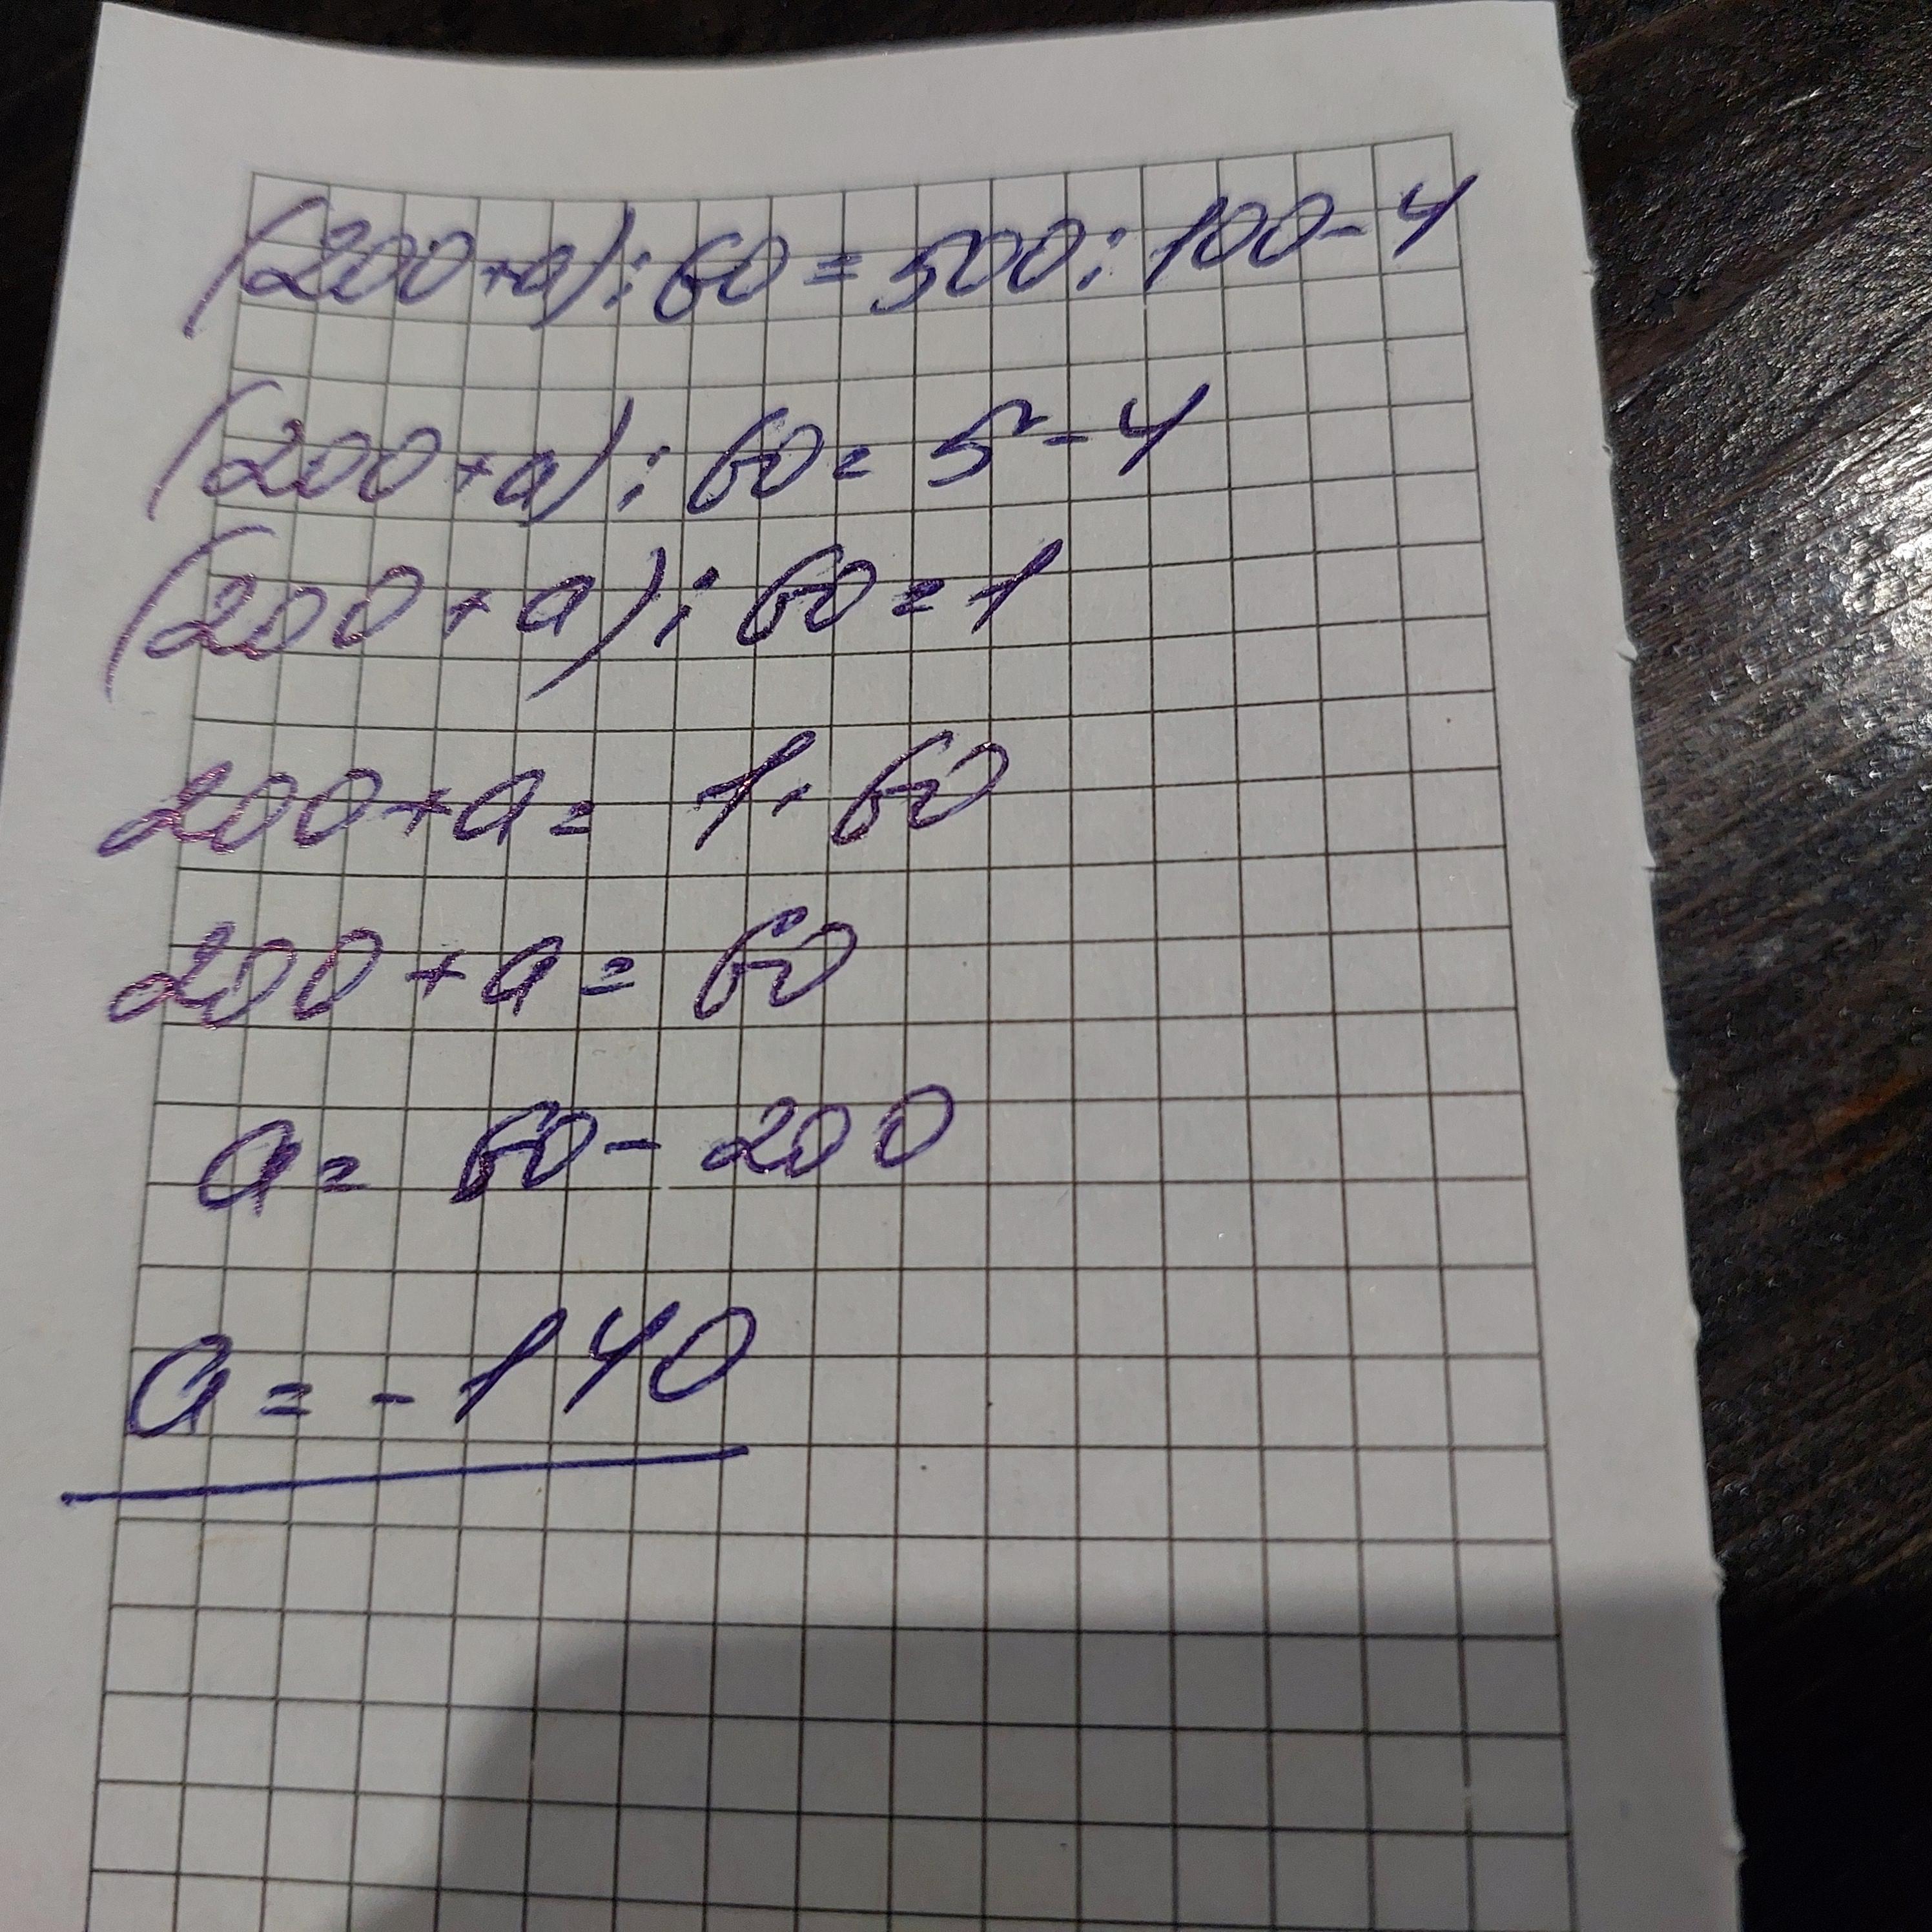 (200+a):60=500:100-4
(200+a):60=5-4
(200+a):60=1
200+a=1·60
200+a=60
a=60-200
a=-140